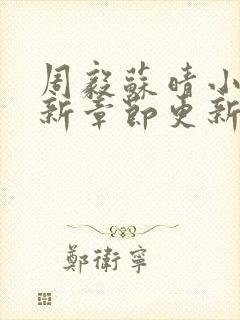 周毅蘇晴小
新章節更新
鄭衛寧